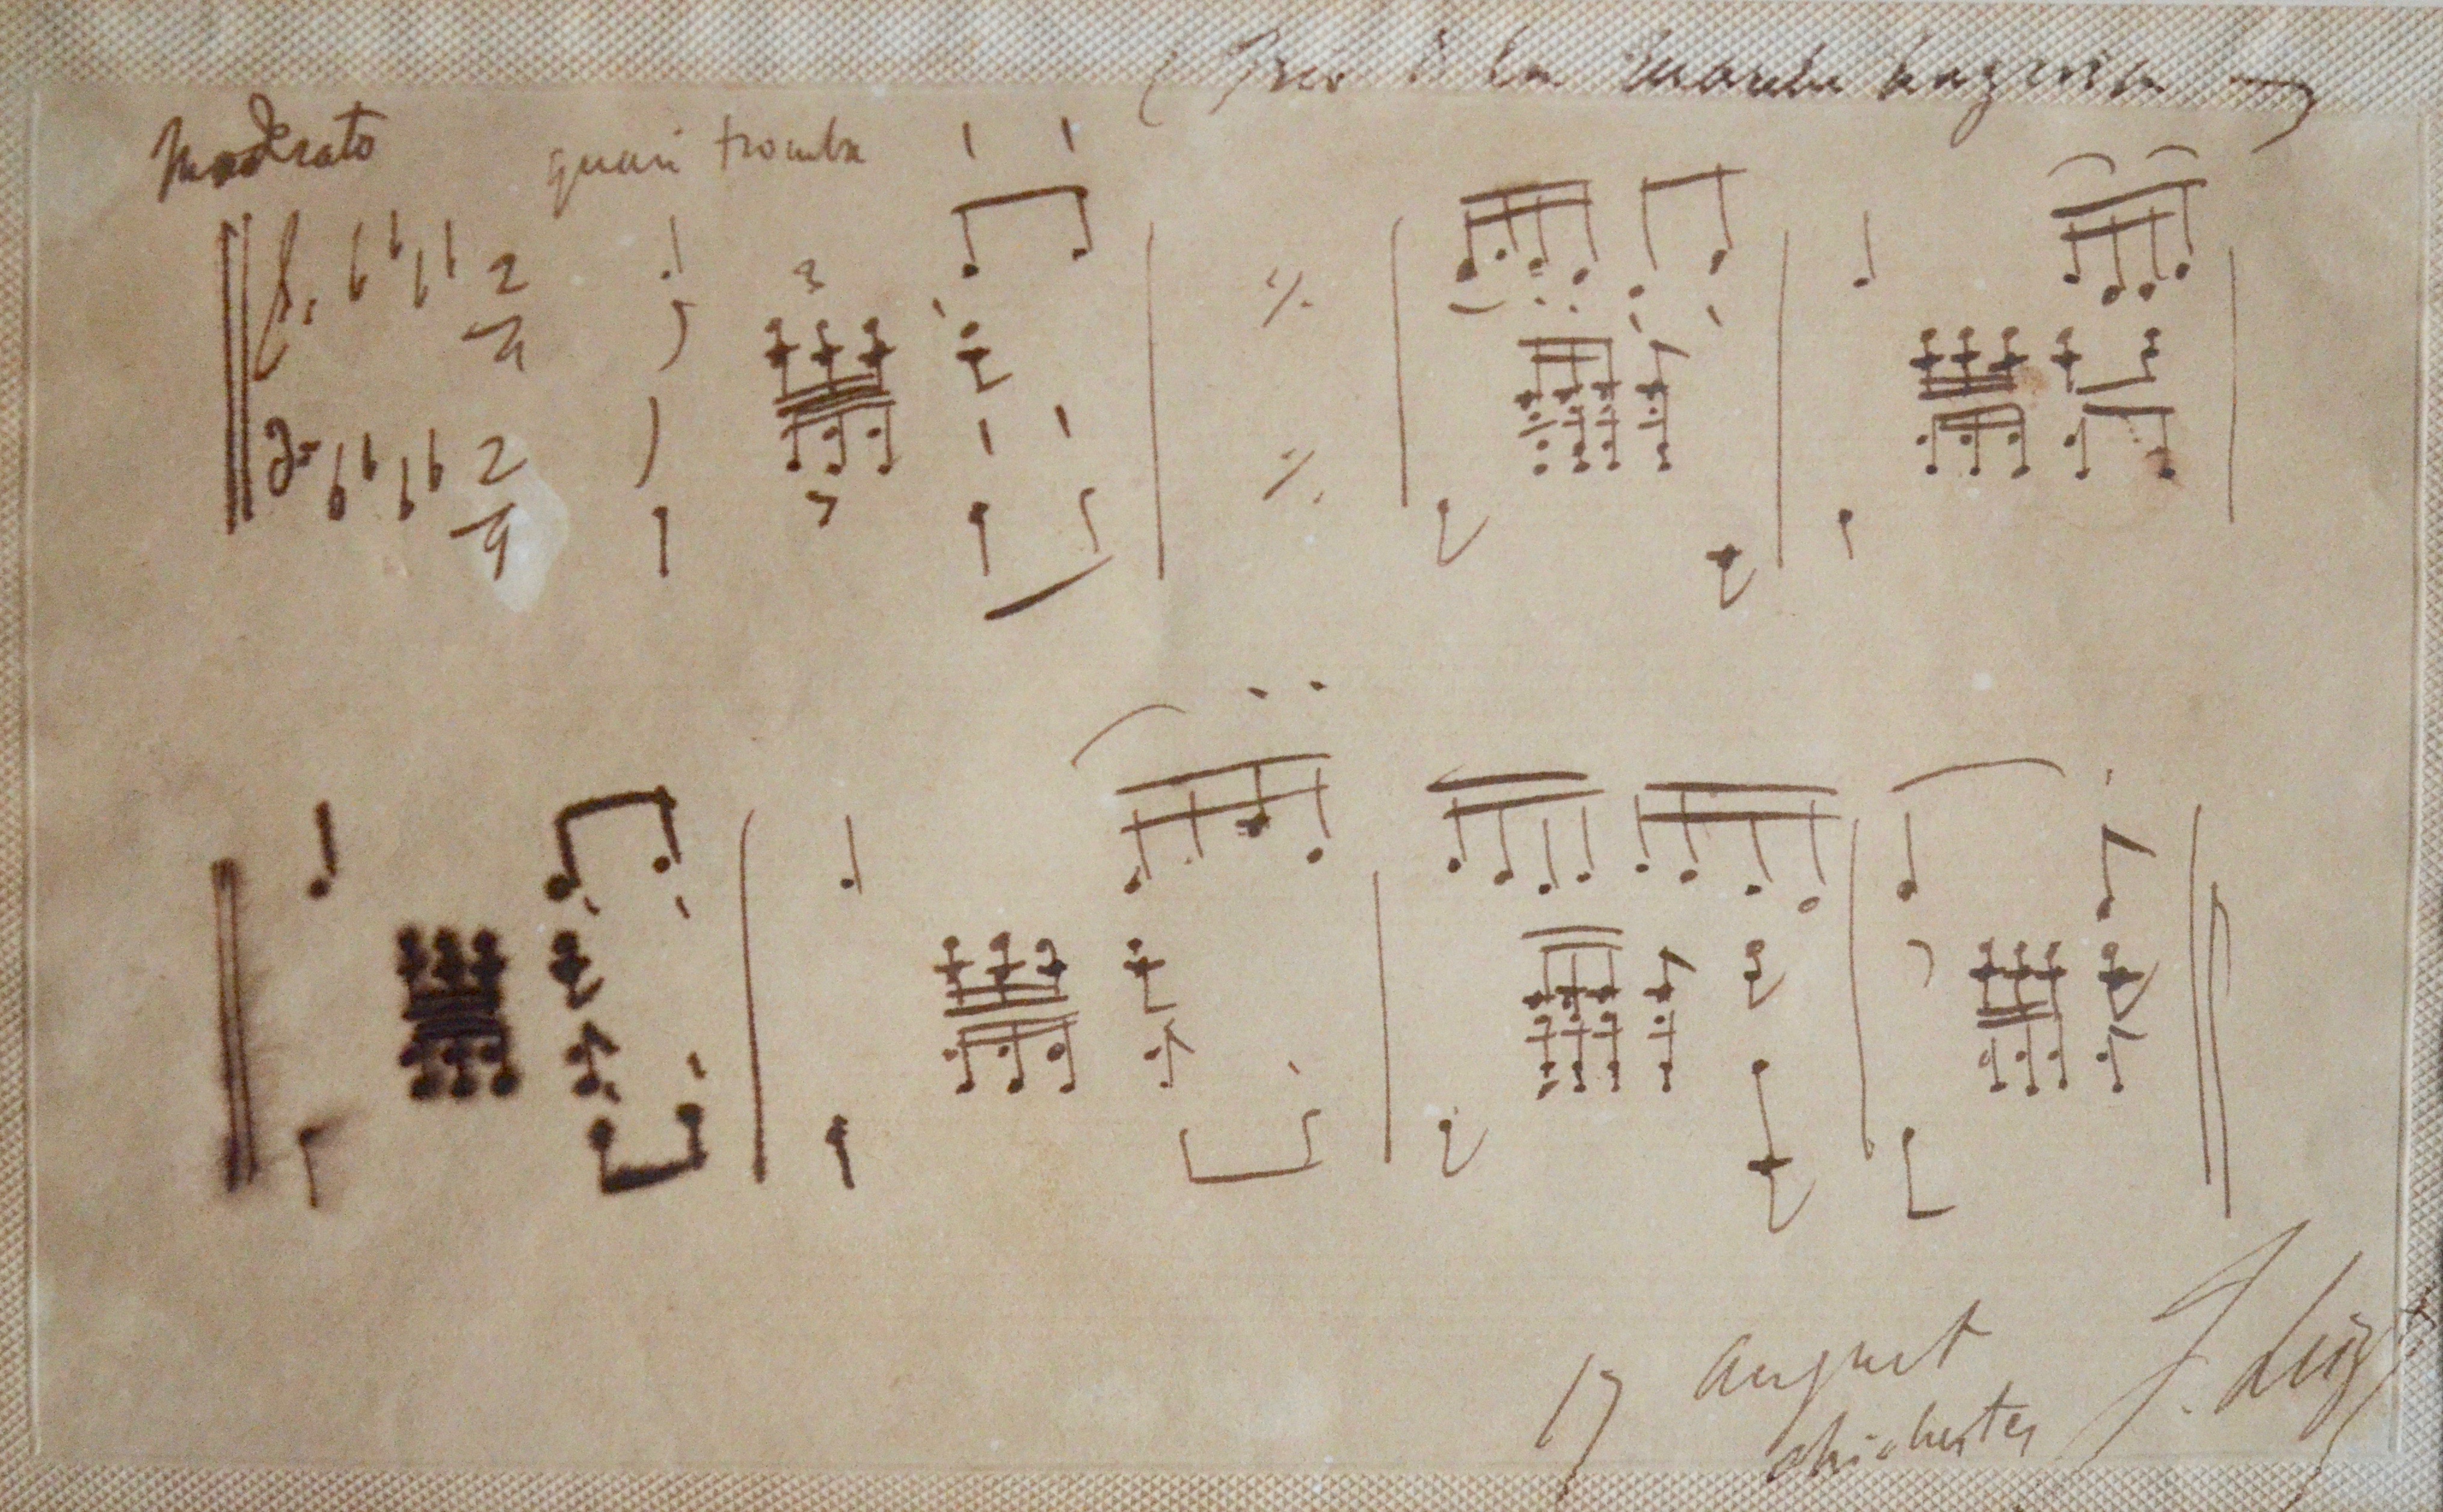 (Trio de la marche hongroise)
Moderato quasi tromba
2 3
4
2
4
17 august F. Liszt
chichester